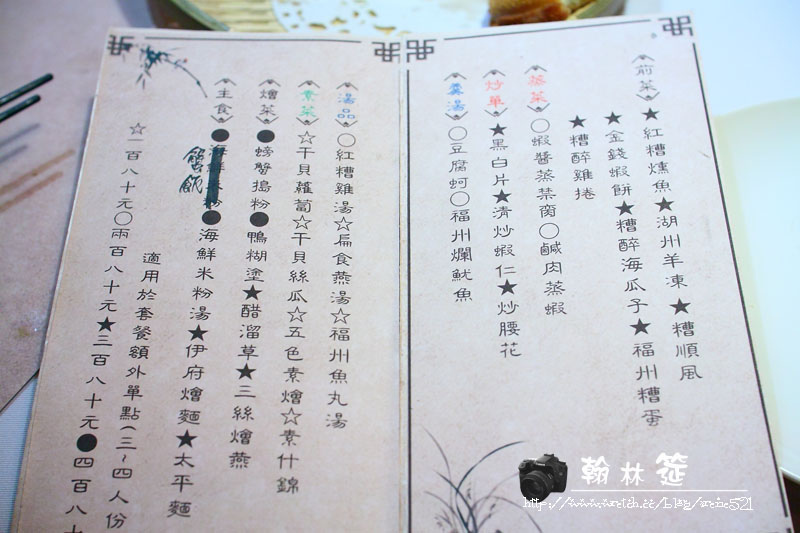 前菜
★紅糟燻魚★湖州羊凍★糟順風
★金錢蝦餅★糟醉海瓜子★福州糟蛋
★糟醉雞捲
蒸菜
○蝦醬蒸禁臠○鹹肉蒸蝦
炒單
★黑白片★清炒蝦仁★炒腰花
羹湯
○豆腐蚵○福州爛魷魚
湯品
○紅糟雞湯☆扁食燕湯☆福州魚丸湯
素菜
☆干貝蘿蔔☆干貝絲瓜☆五色素燴☆素什錦
燴菜
●螃蟹搗粉●鴨糊塗★醋溜草★三絲燴燕
主食
●海鮮米粉●海鮮米粉湯★伊府燴麵★太平麵
適用於套餐額外單點(三~四人份
☆一百八十元○兩百八十元★三百八十元●四百八十
翰林筵